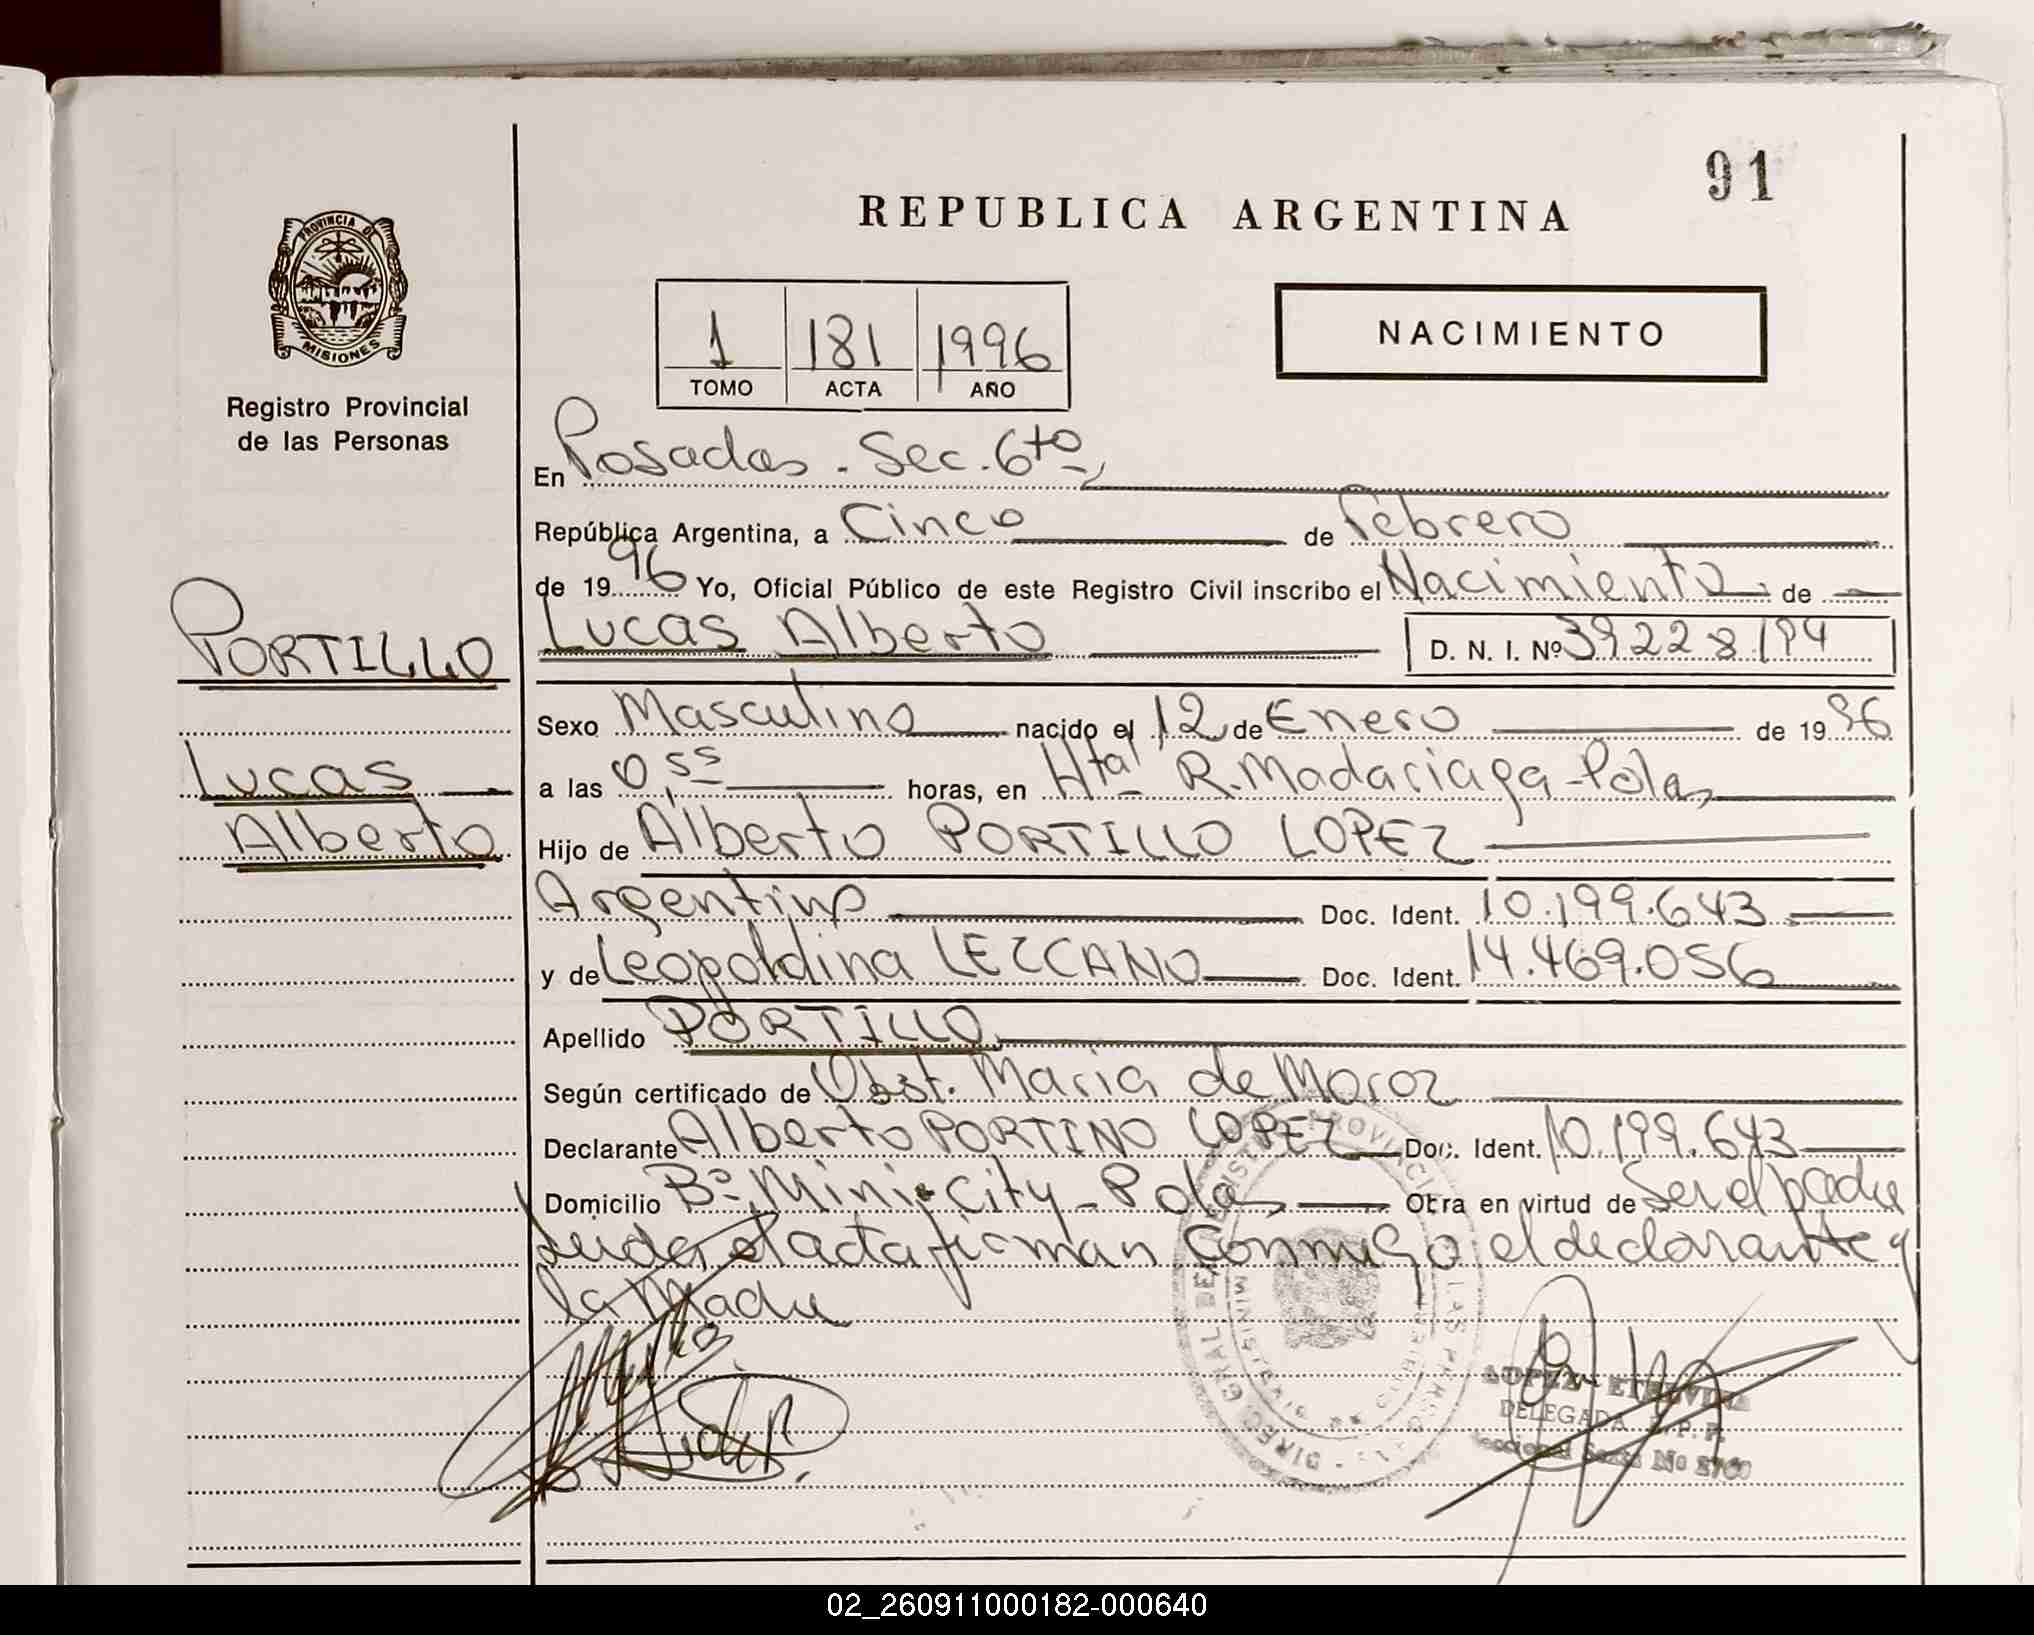 91
REPUBLICA ARGENTINA
PROVINCIA DE
MISIONES
Registro Provincial
de las Personas
1 181 1996
TOMO ACTA AÑO
NACIMIENTO
En Posadas - Sec. 6to,
República Argentina, a Cinco de Febrero
de 1996 Yo, Oficial Público de este Registro Civil inscribo el Nacimiento de
PORTILLO
Lucas Alberto D. N. I. Nº 39228194
Sexo Masculino nacido el 12 de Enero de 1996
Lucas
a las 0,55 horas, en Htal R. Madariaga - Pdas,
Alberto
Hijo de Alberto PORTILLO LOPEZ
Argentino Doc. Ident. 10.199.643
y de Leopoldina LEZCANO Doc. Ident. 14.469.056
Apellido PORTILLO
Según certificado de Obst. Maria de Moroz
Declarante Alberto PORTINO LOPEZ Doc. Ident. 10.199.643
Domicilio Bº Mini-City - Pdas, Obra en virtud de Ser el padre
Leida el acta firman conmigo el declarante y
la Madre
DELEGADA R. P. P.
Seccional Sexta Nº
02_260911000182-000640